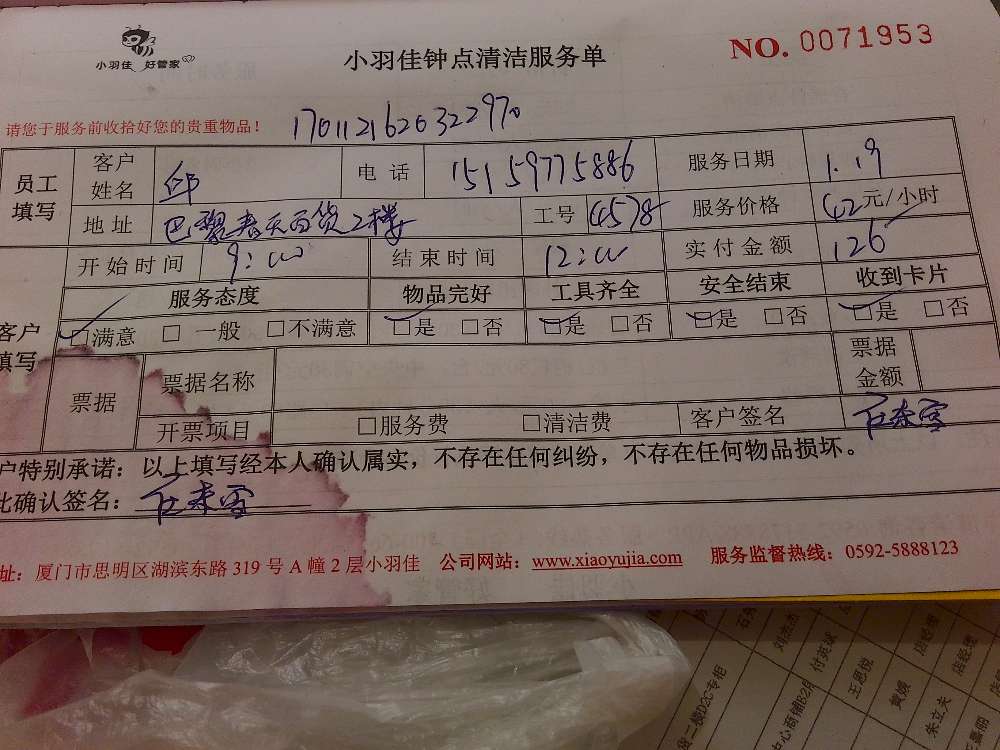 小羽佳 好管家
小羽佳钟点清洁服务单
NO. 0071953
请您于服务前收拾好您的贵重物品！ 1701121620322970
员工填写 客户姓名 邱 电话 15159775886 服务日期 1.19
地址 巴黎春天百货2楼 工号 4578 服务价格 42元/小时
开始时间 9:00 结束时间 12:00 实付金额 126
客户填写 服务态度 物品完好 工具齐全 安全结束 收到卡片
☑满意 □一般 □不满意 ☑是 □否 ☑是 □否 ☑是 □否 ☑是 □否
票据 票据名称 票据金额
开票项目 □服务费 □清洁费 客户签名
户特别承诺：以上填写经本人确认属实，不存在任何纠纷，不存在任何物品损坏。
此确认签名：
址：厦门市思明区湖滨东路 319 号 A 幢 2 层小羽佳 公司网站：www.xiaoyujia.com 服务监督热线：0592-5888123
二楼D2C专柜
中心商铺B2
付英球
王思悦
黄媛
朱立夫
店经理
店经理